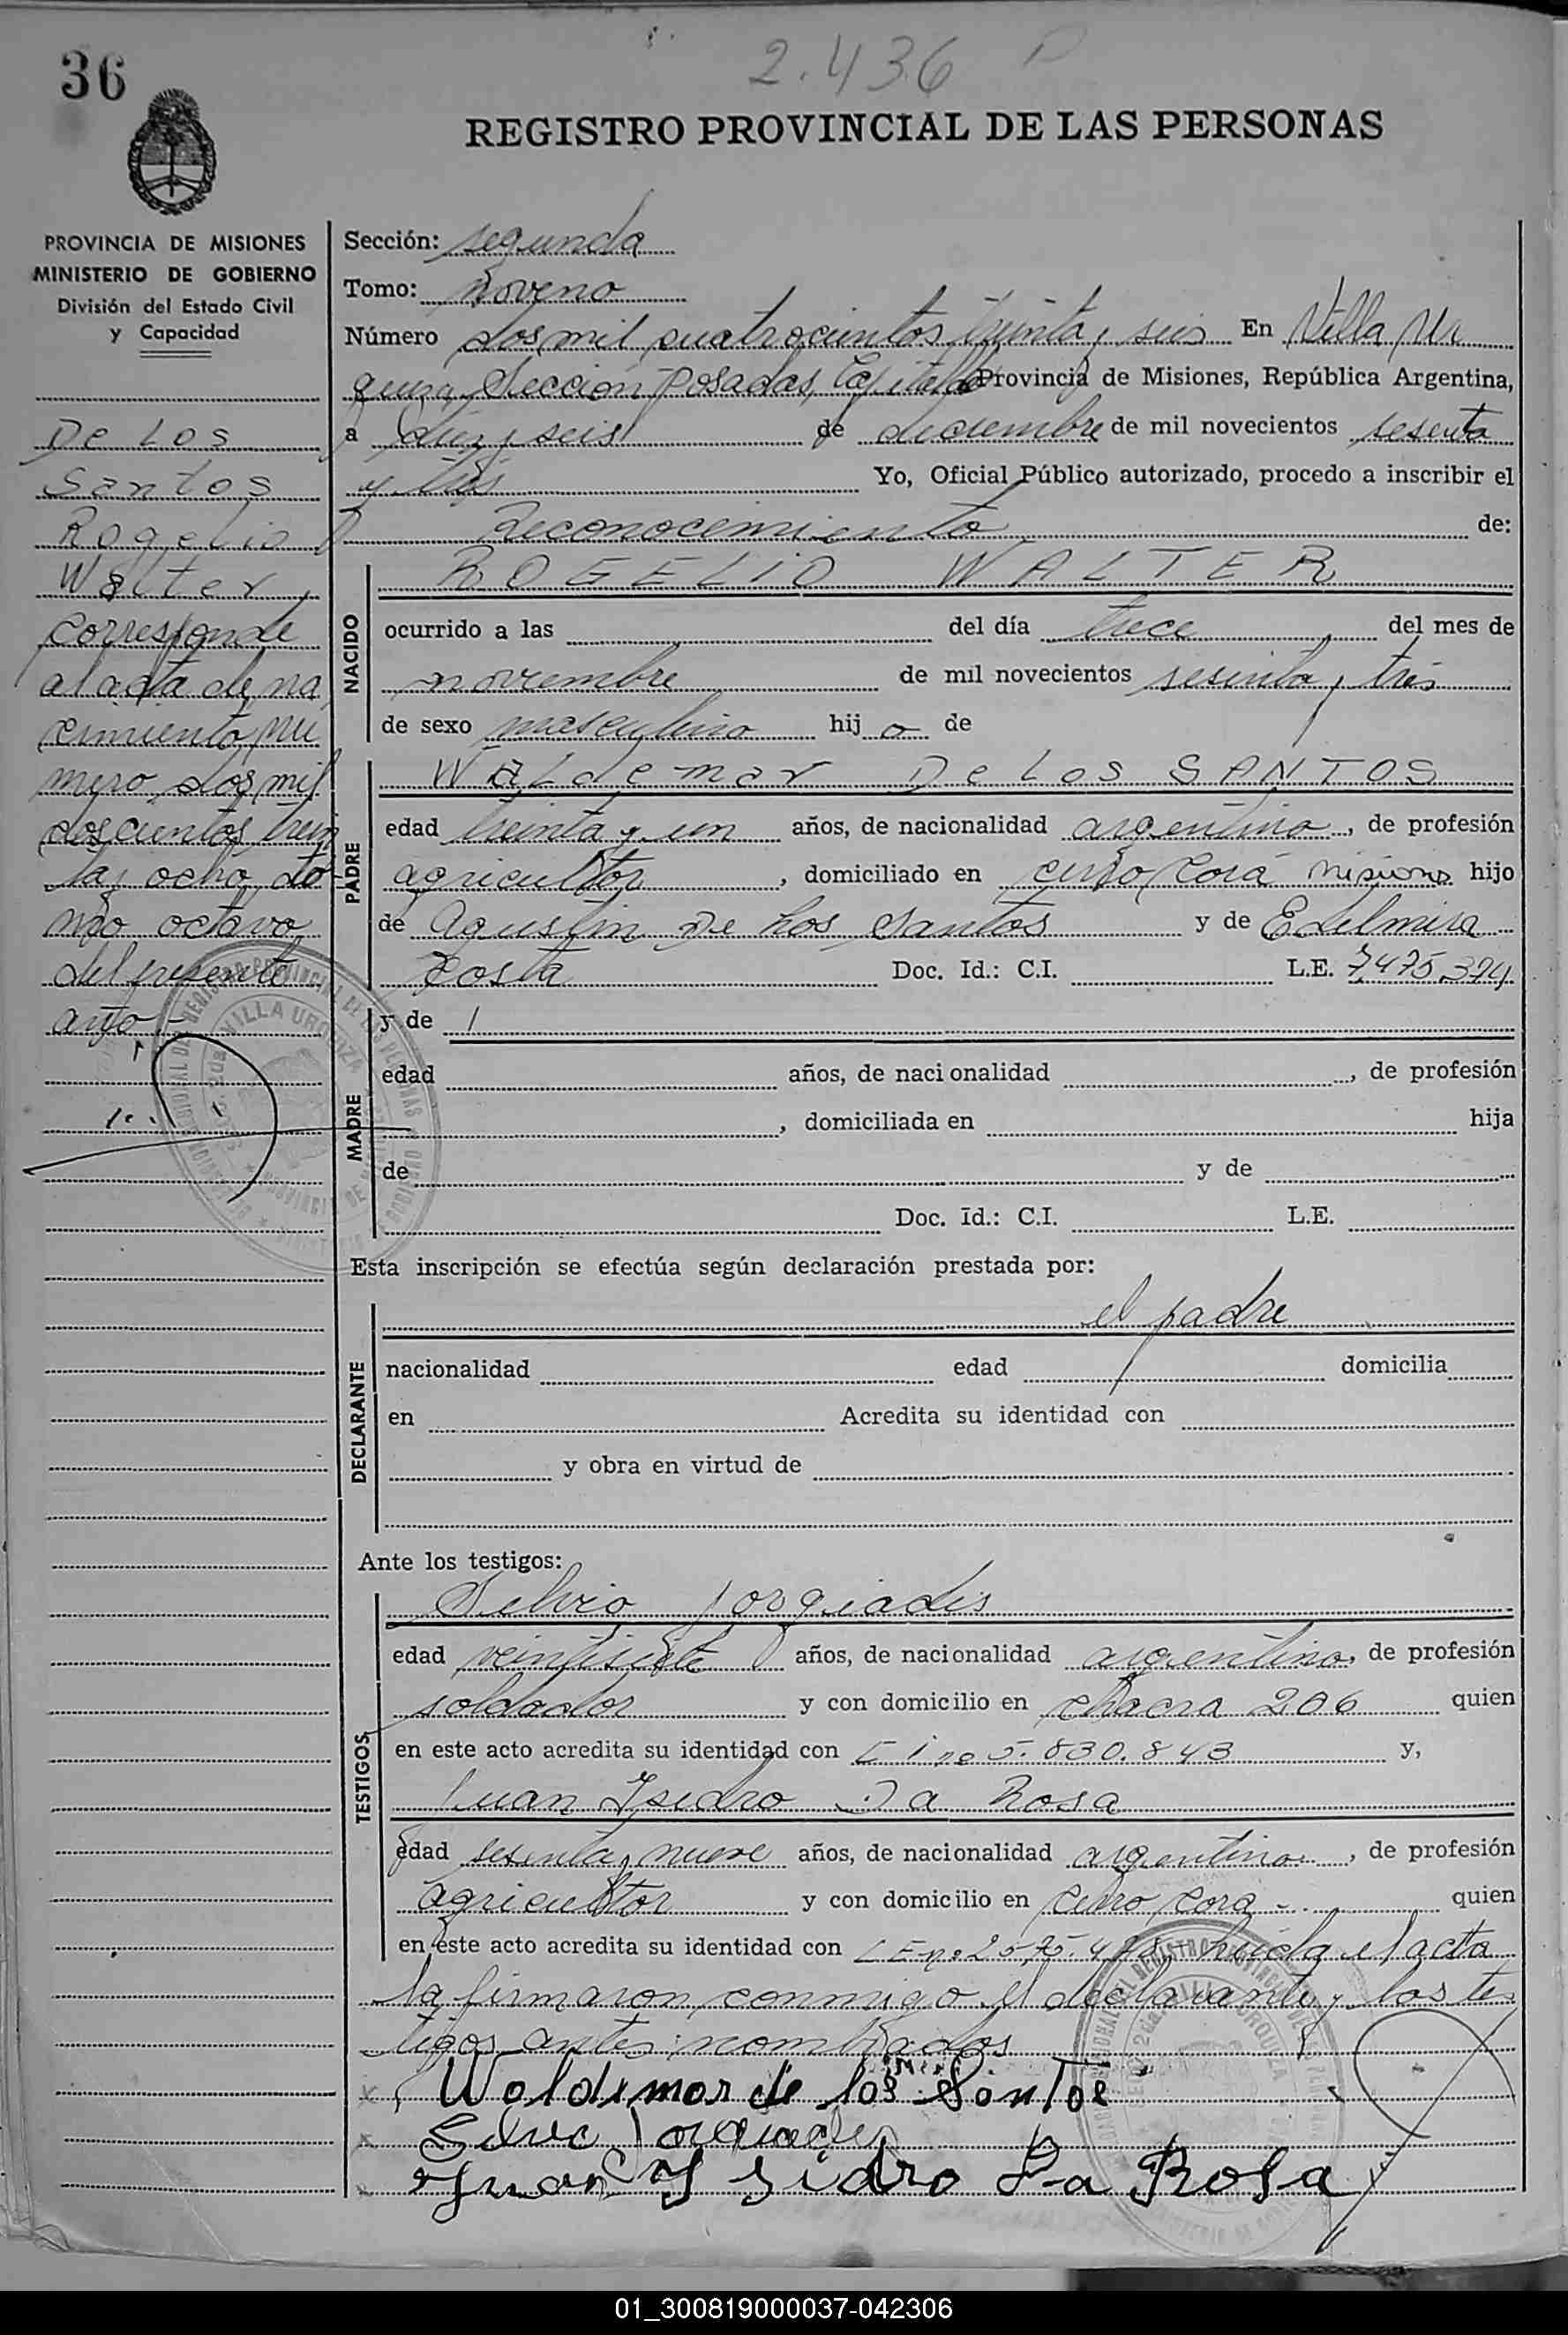 36
2.436
REGISTRO PROVINCIAL DE LAS PERSONAS
PROVINCIA DE MISIONES
MINISTERIO DE GOBIERNO
División del Estado Civil
y Capacidad
De Los
Santos
Rogelio
Walter
corresponde
al acta de na
cimiento nú
mero dos mil
doscientos trein
ta y ocho, to
mo octavo
del presente
año -
Sección: segunda
Tomo: noveno
Número dos mil cuatrocientos treinta y seis En Villa Ur
quiza, Sección Posadas, Capital de Provincia de Misiones, República Argentina,
a diez y seis de diciembre de mil novecientos sesenta
y tres Yo, Oficial Público autorizado, procedo a inscribir el
Reconocimiento de:
NACIDO
ROGELIO WALTER
ocurrido a las del día trece del mes de
noviembre de mil novecientos sesenta y tres
de sexo masculino hijo de
PADRE
Waldemar De Los SANTOS
edad treinta y un años, de nacionalidad argentino, de profesión
agricultor, domiciliado en cerro Corá Misiones hijo
de Agustin De Los Santos y de Edelmira
Costa Doc. Id.: C.I. L.E. 7.475.374
MADRE
y de
edad años, de nacionalidad , de profesión
, domiciliada en hija
de y de
Doc. Id.: C.I. L.E.
Esta inscripción se efectúa según declaración prestada por:
DECLARANTE
el padre
nacionalidad edad domicilia
en Acredita su identidad con
y obra en virtud de
Ante los testigos:
TESTIGOS
Silvio Jorgiadis
edad veintisiete años, de nacionalidad argentino, de profesión
soldador y con domicilio en chacra 206 quien
en este acto acredita su identidad con no 5.830.843 y,
Juan Isidro Da Rosa
edad sesenta y nueve años, de nacionalidad argentino, de profesión
agricultor y con domicilio en cerro Cora - quien
en este acto acredita su identidad con LE no leida el acta
la firmaron conmigo el declarante y los tes
tigos antes nombrados
Woldemar de los Santos
Juan Isidro Da Rosa
01_300819000037-042306